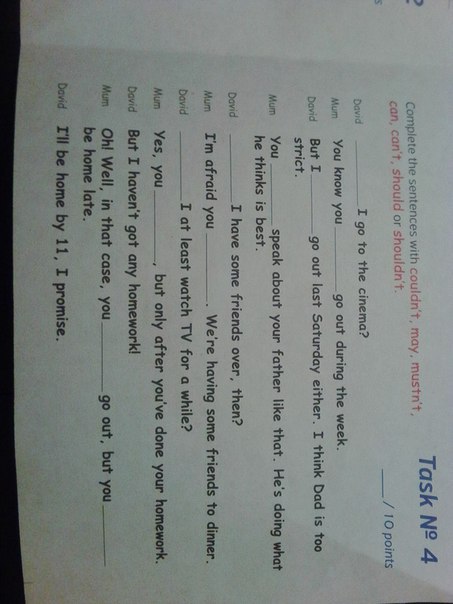 ?
s
Task № 4
____ / 10 points
Complete the sentences with couldn't, may, mustn't,
can, can't, should or shouldn't.
David ________ I go to the cinema?
Mum You know you ________ go out during the week.
David But I ________ go out last Saturday either. I think Dad is too
strict.
Mum You ________ speak about your father like that. He's doing what
he thinks is best.
David ________ I have some friends over, then?
Mum I'm afraid you ________. We're having some friends to dinner.
David ________ I at least watch TV for a while?
Mum Yes, you ________, but only after you've done your homework.
David But I haven't got any homework!
Mum Oh! Well, in that case, you ________ go out, but you ________
be home late.
David I'll be home by 11, I promise.